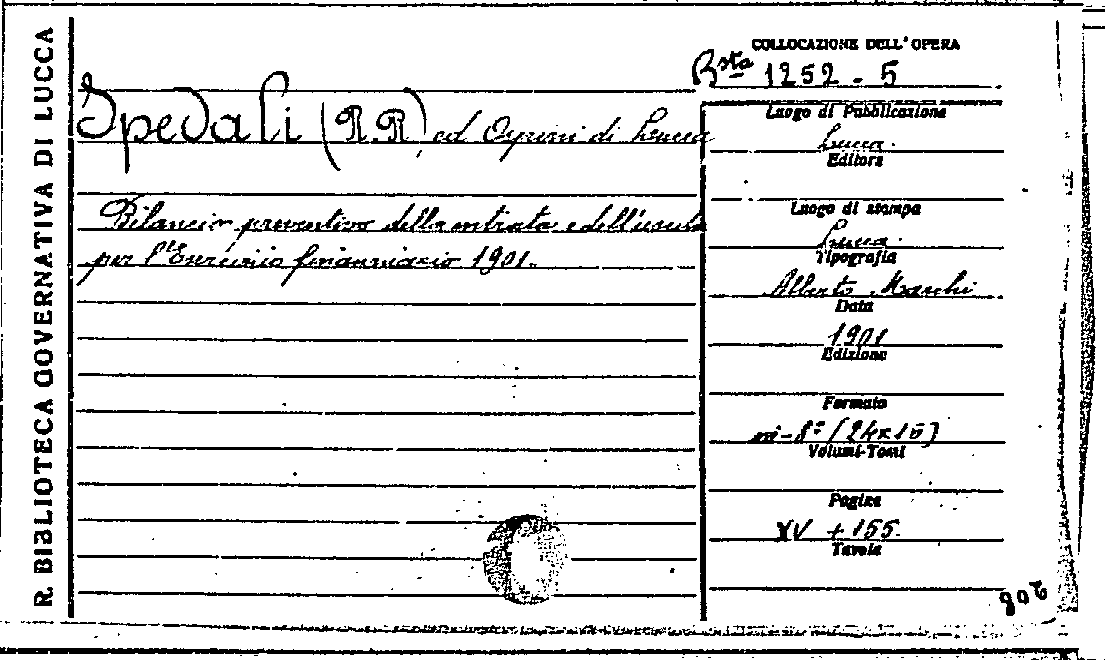 R. BIBLIOTECA GOVERNATIVA DI LUCCA
COLLOCAZIONE DELL'OPERA
Bsta 1252 - 5
Spedali (RR) ed Ospizi di Lucca
Bilancio preventivo della entrata e dell'uscita
per l'Esercizio finanziario 1901.
Luogo di Pubblicazione
Lucca
Editore
Luogo di stampa
Lucca
Tipografia
Alberto Marchi
Data
1901
Edizione
Formato
in-8° (24x16)
Volumi-Tomi
Pagine
XV + 155.
Tavole
208